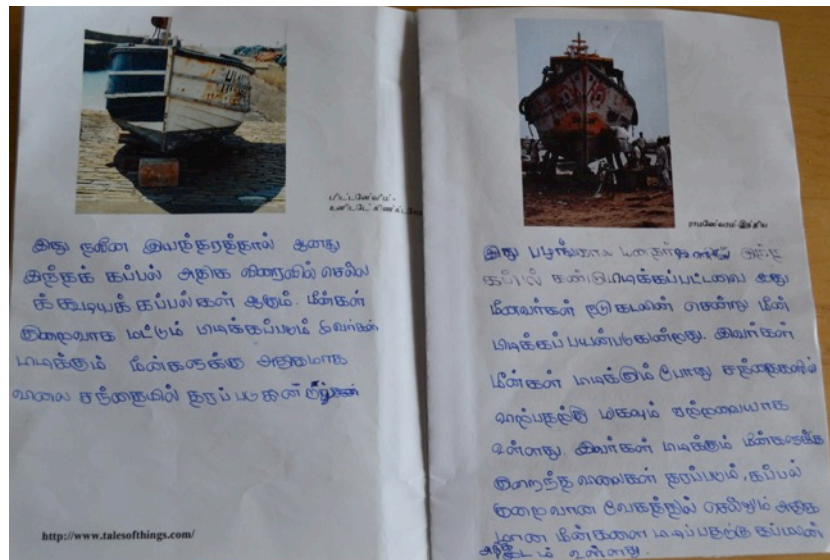 இது நவீன இயந்தரத்தால் ஆனது
இந்தக் கப்பல் அதிக விரைவில் செல்ல
க் கூடியக் கப்பல்கள் ஆகும். மீன்கள்
குறைவாக மட்டும் பிடிக்கப்படும் இவர்கள்
பிடிக்கும் மீன்களுக்கு அதிகமாக
விலை சந்தையில் தரப் படுகின்
http://www.talesofthings.com/
ராமனேஸ்வரம்-இந்தியா
இது பழங்கால
கப்பல் கண்டுபிடிக்கப்பட்டவை இது
மீனவர்கள் நடு கடலின் சென்று மீன்
பிடிக்கப் பயன்படுகின்றது. இவர்கள்
மீன்கள் பிடிக்கும் போது சந்தைகளில்
விற்பதற்கு மிகவும் ஏற்றவையாக
உள்ளது. இவர்கள் பிடிக்கும் மீன்களுக்கு
குறைந்த விலைகள் தரப்படும், கப்பல்
குறைவான வேகத்தில் செல்லும் அதிக
மான மீன்களை பிடிப்பதற்கு கப்பலின்
இடம் உள்ளது.